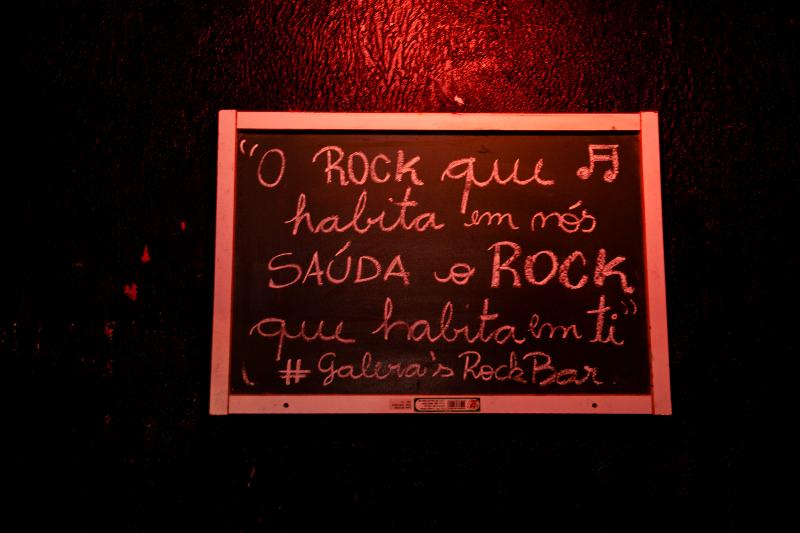 "O ROCK que
habita em nós
SAÚDA o ROCK
que habita em ti"
# Galera's Rock Bar